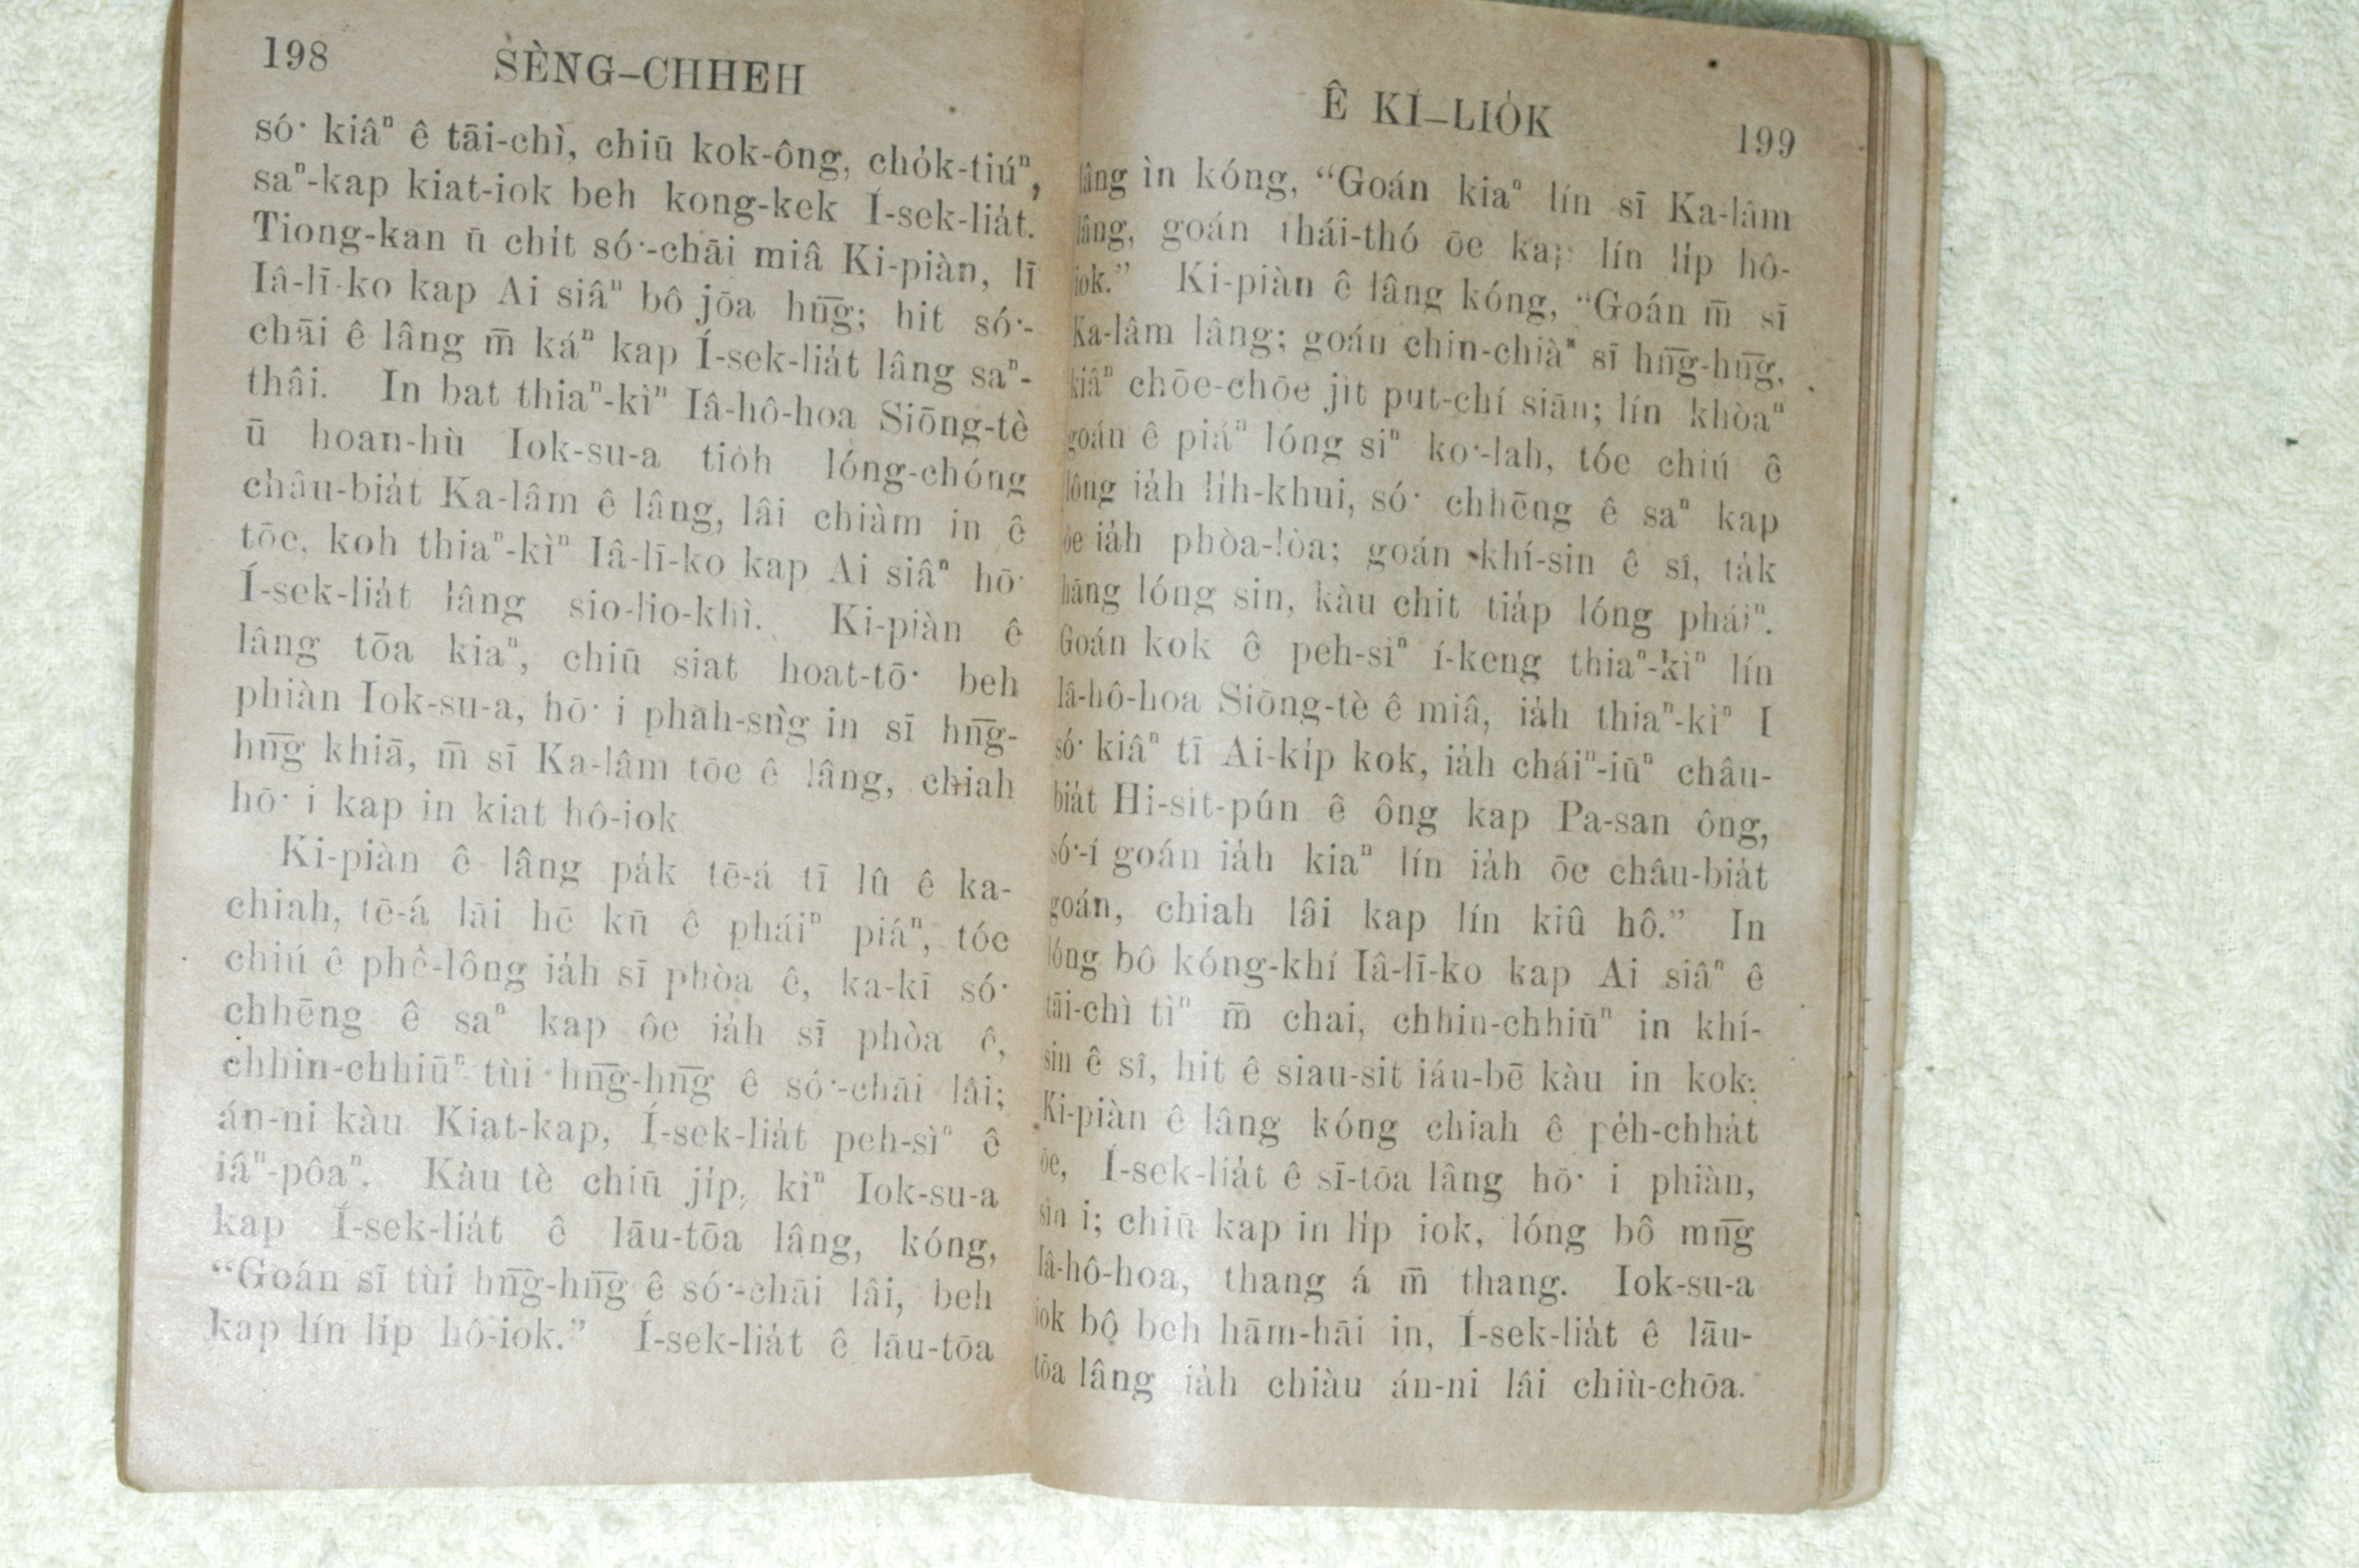 198 SÈNG–CHHEH
só͘ kiâⁿ ê tāi-chì, chiū kok-ông, cho̍k-tiúⁿ,
saⁿ-kap kiat-iok beh kong-kek Í-sek-lia̍t.
Tiong-kan ū chi̍t só͘-chāi miâ Ki-piàn, lī
Iâ-lī-ko kap Ai siâⁿ bô jōa hn̄g; hit só͘-
chāi ê lâng m̄ káⁿ kap Í-sek-lia̍t lâng saⁿ-
thâi. In bat thiaⁿ-kìⁿ Iâ-hô-hoa Siōng-tè
ū hoan-hù Iok-su-a tio̍h lóng-chóng
châu-bia̍t Ka-lâm ê lâng, lâi chiàm in ê
tōe, koh thiaⁿ-kìⁿ Iâ-lī-ko kap Ai siâⁿ hō͘
Í-sek-lia̍t lâng sio-lio-khì. Ki-piàn ê
lâng tōa kiaⁿ, chiū siat hoat-tō͘ beh
phiàn Iok-su-a, hō͘ i phah-sǹg in sī hn̄g-
hn̄g khiā, m̄ sī Ka-lâm tōe ê lâng, chiah
hō͘ i kap in kiat hô-iok
Ki-piàn ê lâng pa̍k tē-á tī lû ê ka-
chiah, tē-á lāi hē kū ê pháiⁿ piáⁿ, tóe
chiú ê phê-lông ia̍h sī phòa ê, ka-kī só͘
chhēng ê saⁿ kap ôe ia̍h sī phòa ê,
chhin-chhiūⁿ tùi hn̄g-hn̄g ê só͘-chāi lâi;
án-ni kàu Kiat-kap, Í-sek-lia̍t peh-sìⁿ ê
iâⁿ-pôaⁿ. Kàu tè chiū ji̍p, kìⁿ Iok-su-a
kap Í-sek-lia̍t ê lāu-tōa lâng, kóng,
“Goán sī tùi hn̄g-hn̄g ê só͘-chāi lâi, beh
kap lín li̍p hô-iok.” Í-sek-lia̍t ê lāu-tōa
Ê KÌ–LIO̍K 199
lâng ìn kóng, “Goán kiaⁿ lín sī Ka-lâm
lâng, goán thái-thó ōe kap lín li̍p hô-
iok.” Ki-piàn ê lâng kóng, “Goán m̄ sī
Ka-lâm lâng; goán chin-chiàⁿ sī hn̄g-hn̄g,
kiâⁿ chōe-chōe ji̍t put-chí siān; lín khòaⁿ
goán ê piáⁿ lóng siⁿ ko͘-lah, tóe chiú ê
lông ia̍h li̍h-khui, só͘ chhēng ê saⁿ kap
ôe ia̍h phòa-lòa; goán khí-sin ê sî, ta̍k
hāng lóng sin, kàu chit tia̍p lóng pháiⁿ.
Goán kok ê peh-sìⁿ í-keng thiaⁿ-kìⁿ lín
Iâ-hô-hoa Siōng-tè ê miâ, ia̍h thiaⁿ-kìⁿ I
só͘ kiâⁿ tī Ai-ki̍p kok, ia̍h cháiⁿ-iūⁿ châu-
bia̍t Hi-sit-pún ê ông kap Pa-san ông,
só͘-í goán ia̍h kiaⁿ lín ia̍h ōe châu-bia̍t
goán, chiah lâi kap lín kiû hô.” In
lóng bô kóng-khí Iâ-lī-ko kap Ai siâⁿ ê
tāi-chì tìⁿ m̄ chai, chhin-chhiūⁿ in khí-
sin ê sî, hit ê siau-sit iáu-bē kàu in kok.
Ki-piàn ê lâng kóng chiah ê pe̍h-chha̍t
ōe, Í-sek-lia̍t ê sī-tōa lâng hō͘ i phiàn,
sìn i; chiū kap in li̍p iok, lóng bô mn̄g
Iâ-hô-hoa, thang á m̄ thang. Iok-su-a
iok bô beh hām-hāi in, Í-sek-lia̍t ê lāu-
tōa lâng ia̍h chiàu án-ni lâi chiù-chōa.